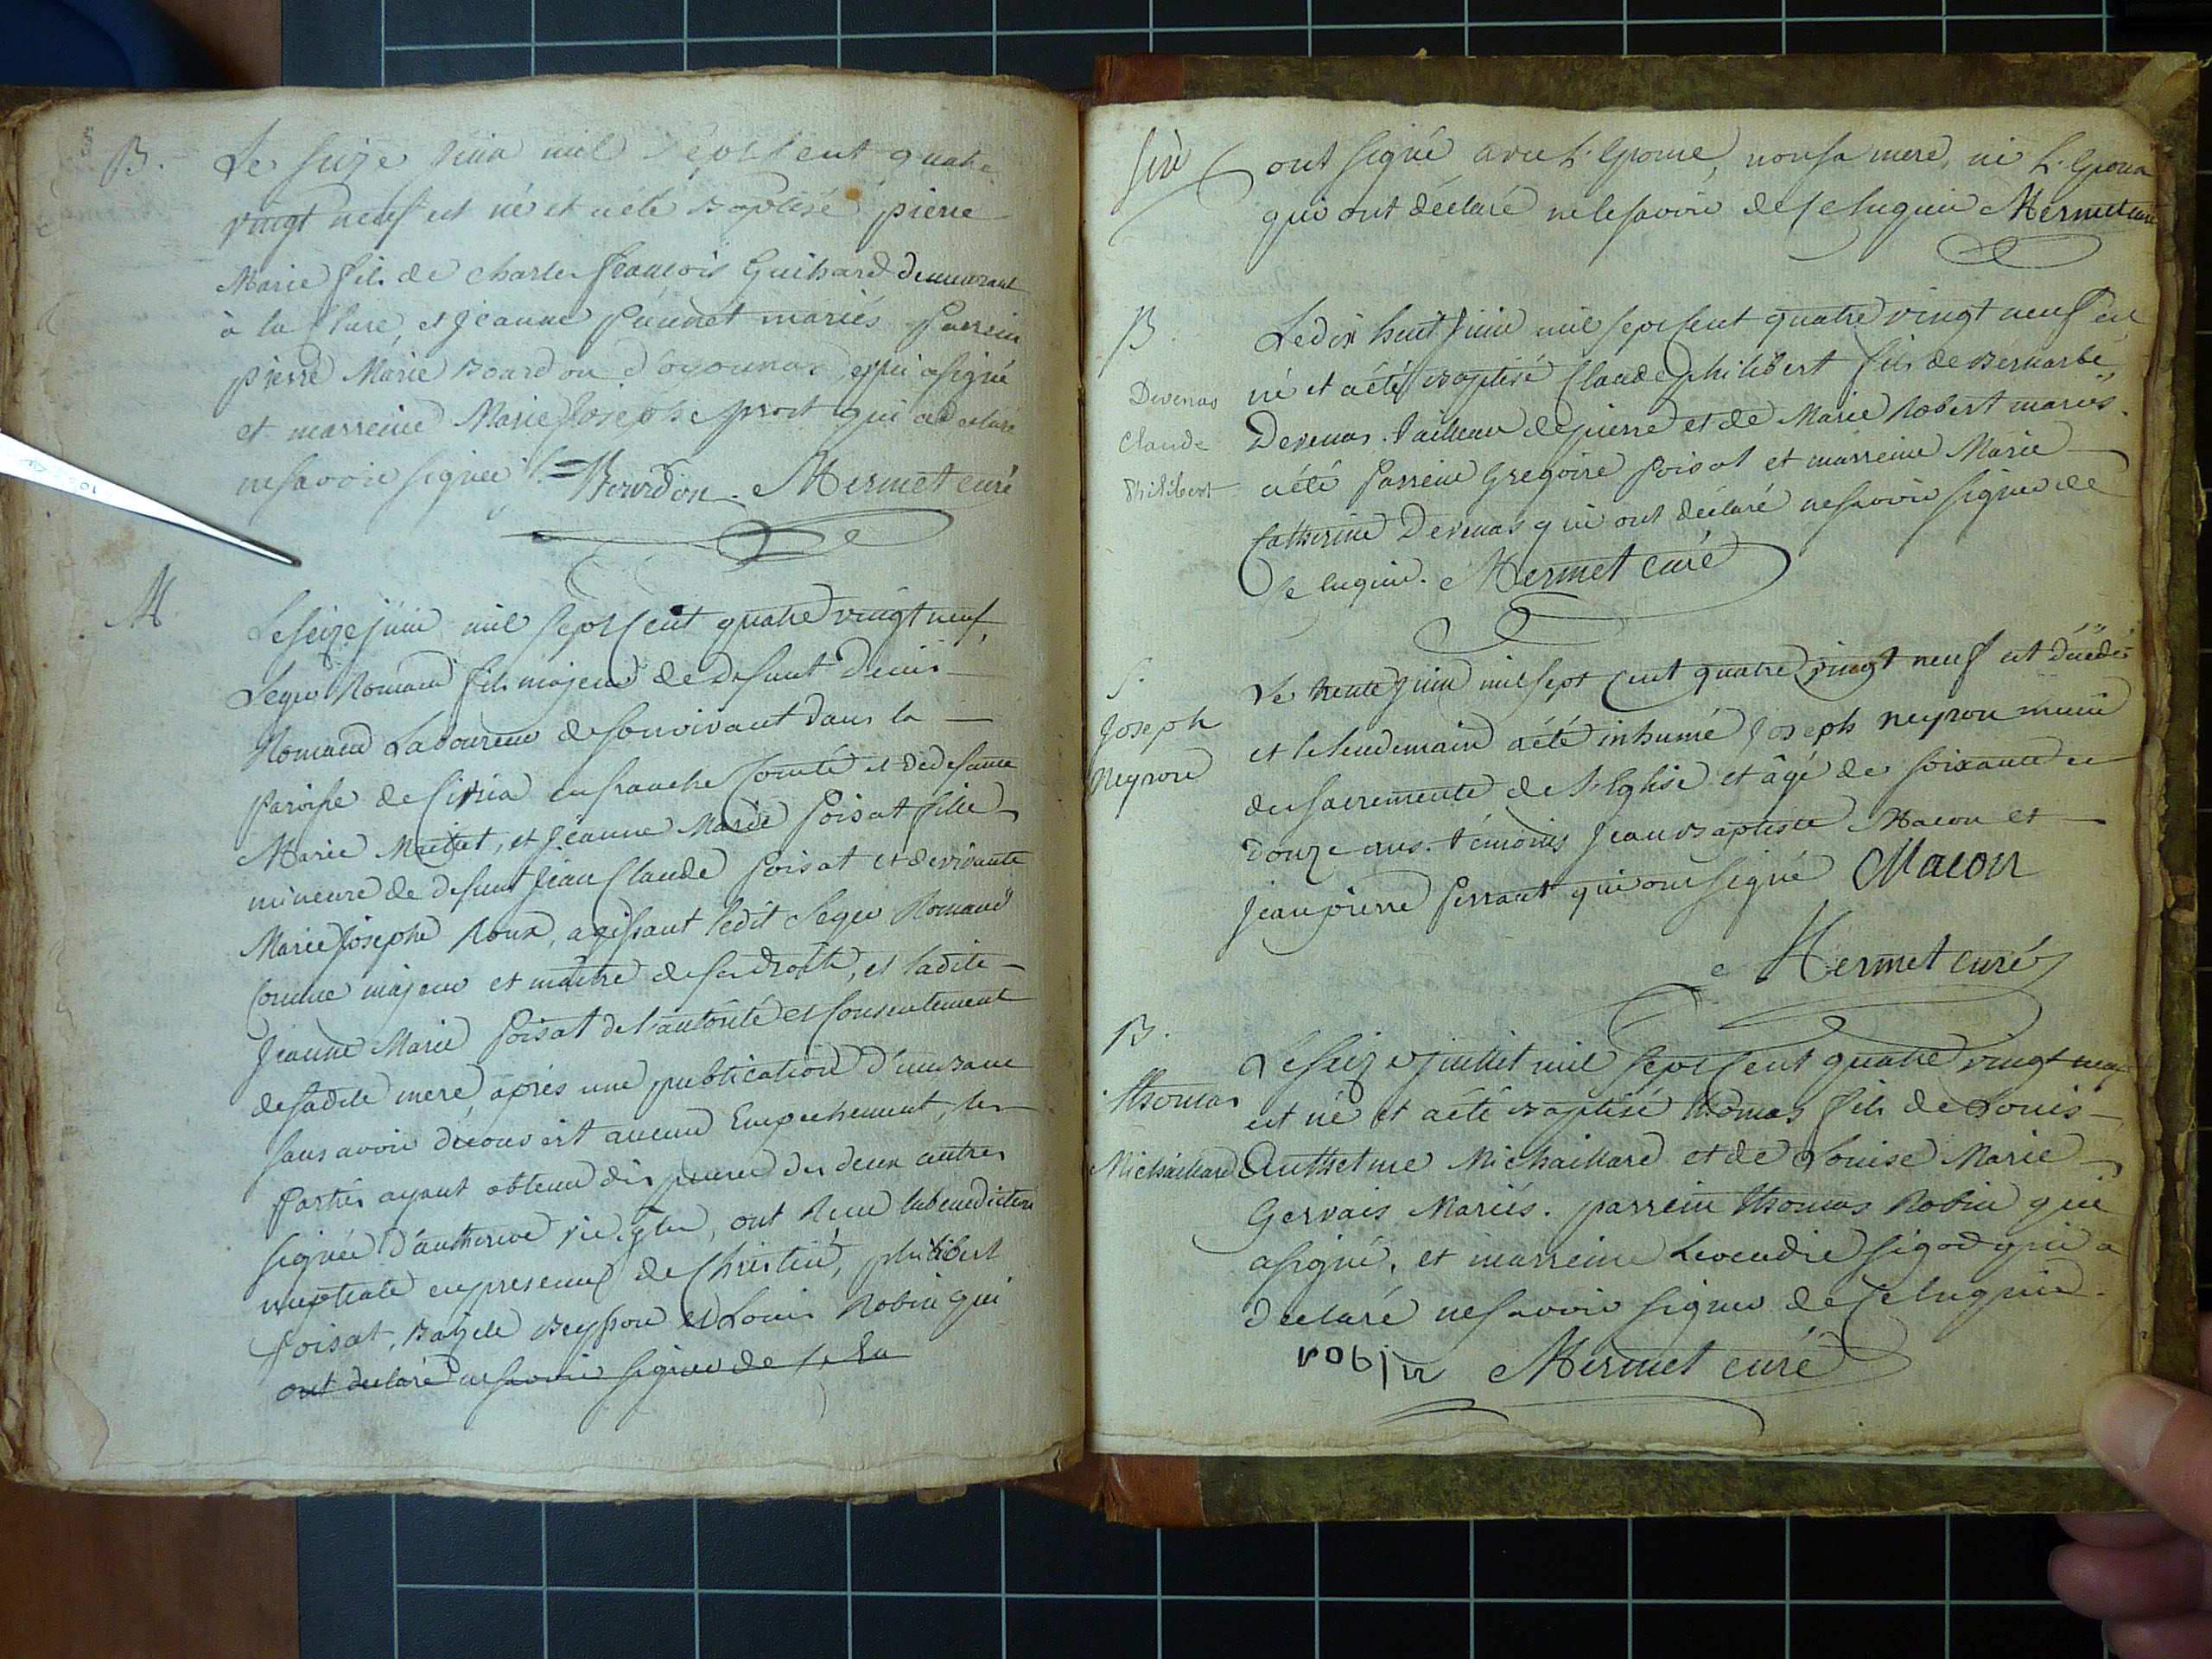 B. Le seize juin mil sept cent quatre
vingt neuf est né et a été baptisé pierre
Marie fils de charles françois Guichard demeurant
à la Cluse, et jeanne paunet mariés parrein
pierre Marie Bourdon d'oyonnas, qui a signé
et marreine Marie josephe prost qui a declaré
ne savoir signer. Bourdon. Hermet curé
M
Le seize juin mil sept cent quatre vingt neuf,
Romand fils majeur de defunt Denis
Romand Laboureur de son vivant dans la
paroisse de Civria en franche Comté et de defunte
Marie et jeanne Marie poisat fille
mineure de defunt jean Claude poisat et de vivante
Marie josephe Roux, agissant ledit Romand
comme majeur et maître de ses droits, et ladite
jeanne Marie poisat de l'autorité et consentement
de sadite mere après une publication d'un banc
sans avoir decouvert aucun Empechement, les
parties ayant obtenu dispense des deux autres
signée d'autherive vic. gler, ont reçu la benediction
nuptiale en presence de Christin, philibert
poisat, Beysson et Louis Robin qui
ont declaré ne savoir signer de ce
ont signé avec L'Epoux, non sa mere, ni L'Epouse
qui ont déclaré ne le savoir de ce Enquis Hermet curé
B. Le dix huit juin mil sept cent quatre vingt neuf est
né et a été baptisé Claude philibert fils de Bernarbé
Devenas
Claude
Philibert
Devenas. tailleur de pierre et de Marie Robert mariés.
a été parrein Gregoire poisat et marreine Marie
Catherine Devenas qui ont déclaré ne savoir signer de
ce Enquis. Hermet curé
S.
Joseph
Neyron
Le trente juin mil sept cent quatre vingt neuf est décédé
et le lendemain a été inhumé Joseph neyron muni
des sacrements de L'Eglise et âgé de soixante et
douze ans. témoins jean Baptiste Macon et
jean pierre perraut qui ont signé Macon
Hermet curé
B.
thomas
Michaillard
Le seize juillet mil sept cent quatre vingt neuf
est né et a été baptisé thomas fils de Louis
Anthelme Michaillard et de Louise Marie
Gervais Mariés. parrein thomas Robin qui
a signé, et marreine Leocadie sigod qui a
declaré ne savoir signer de ce Enquise.
robin Hermet curé